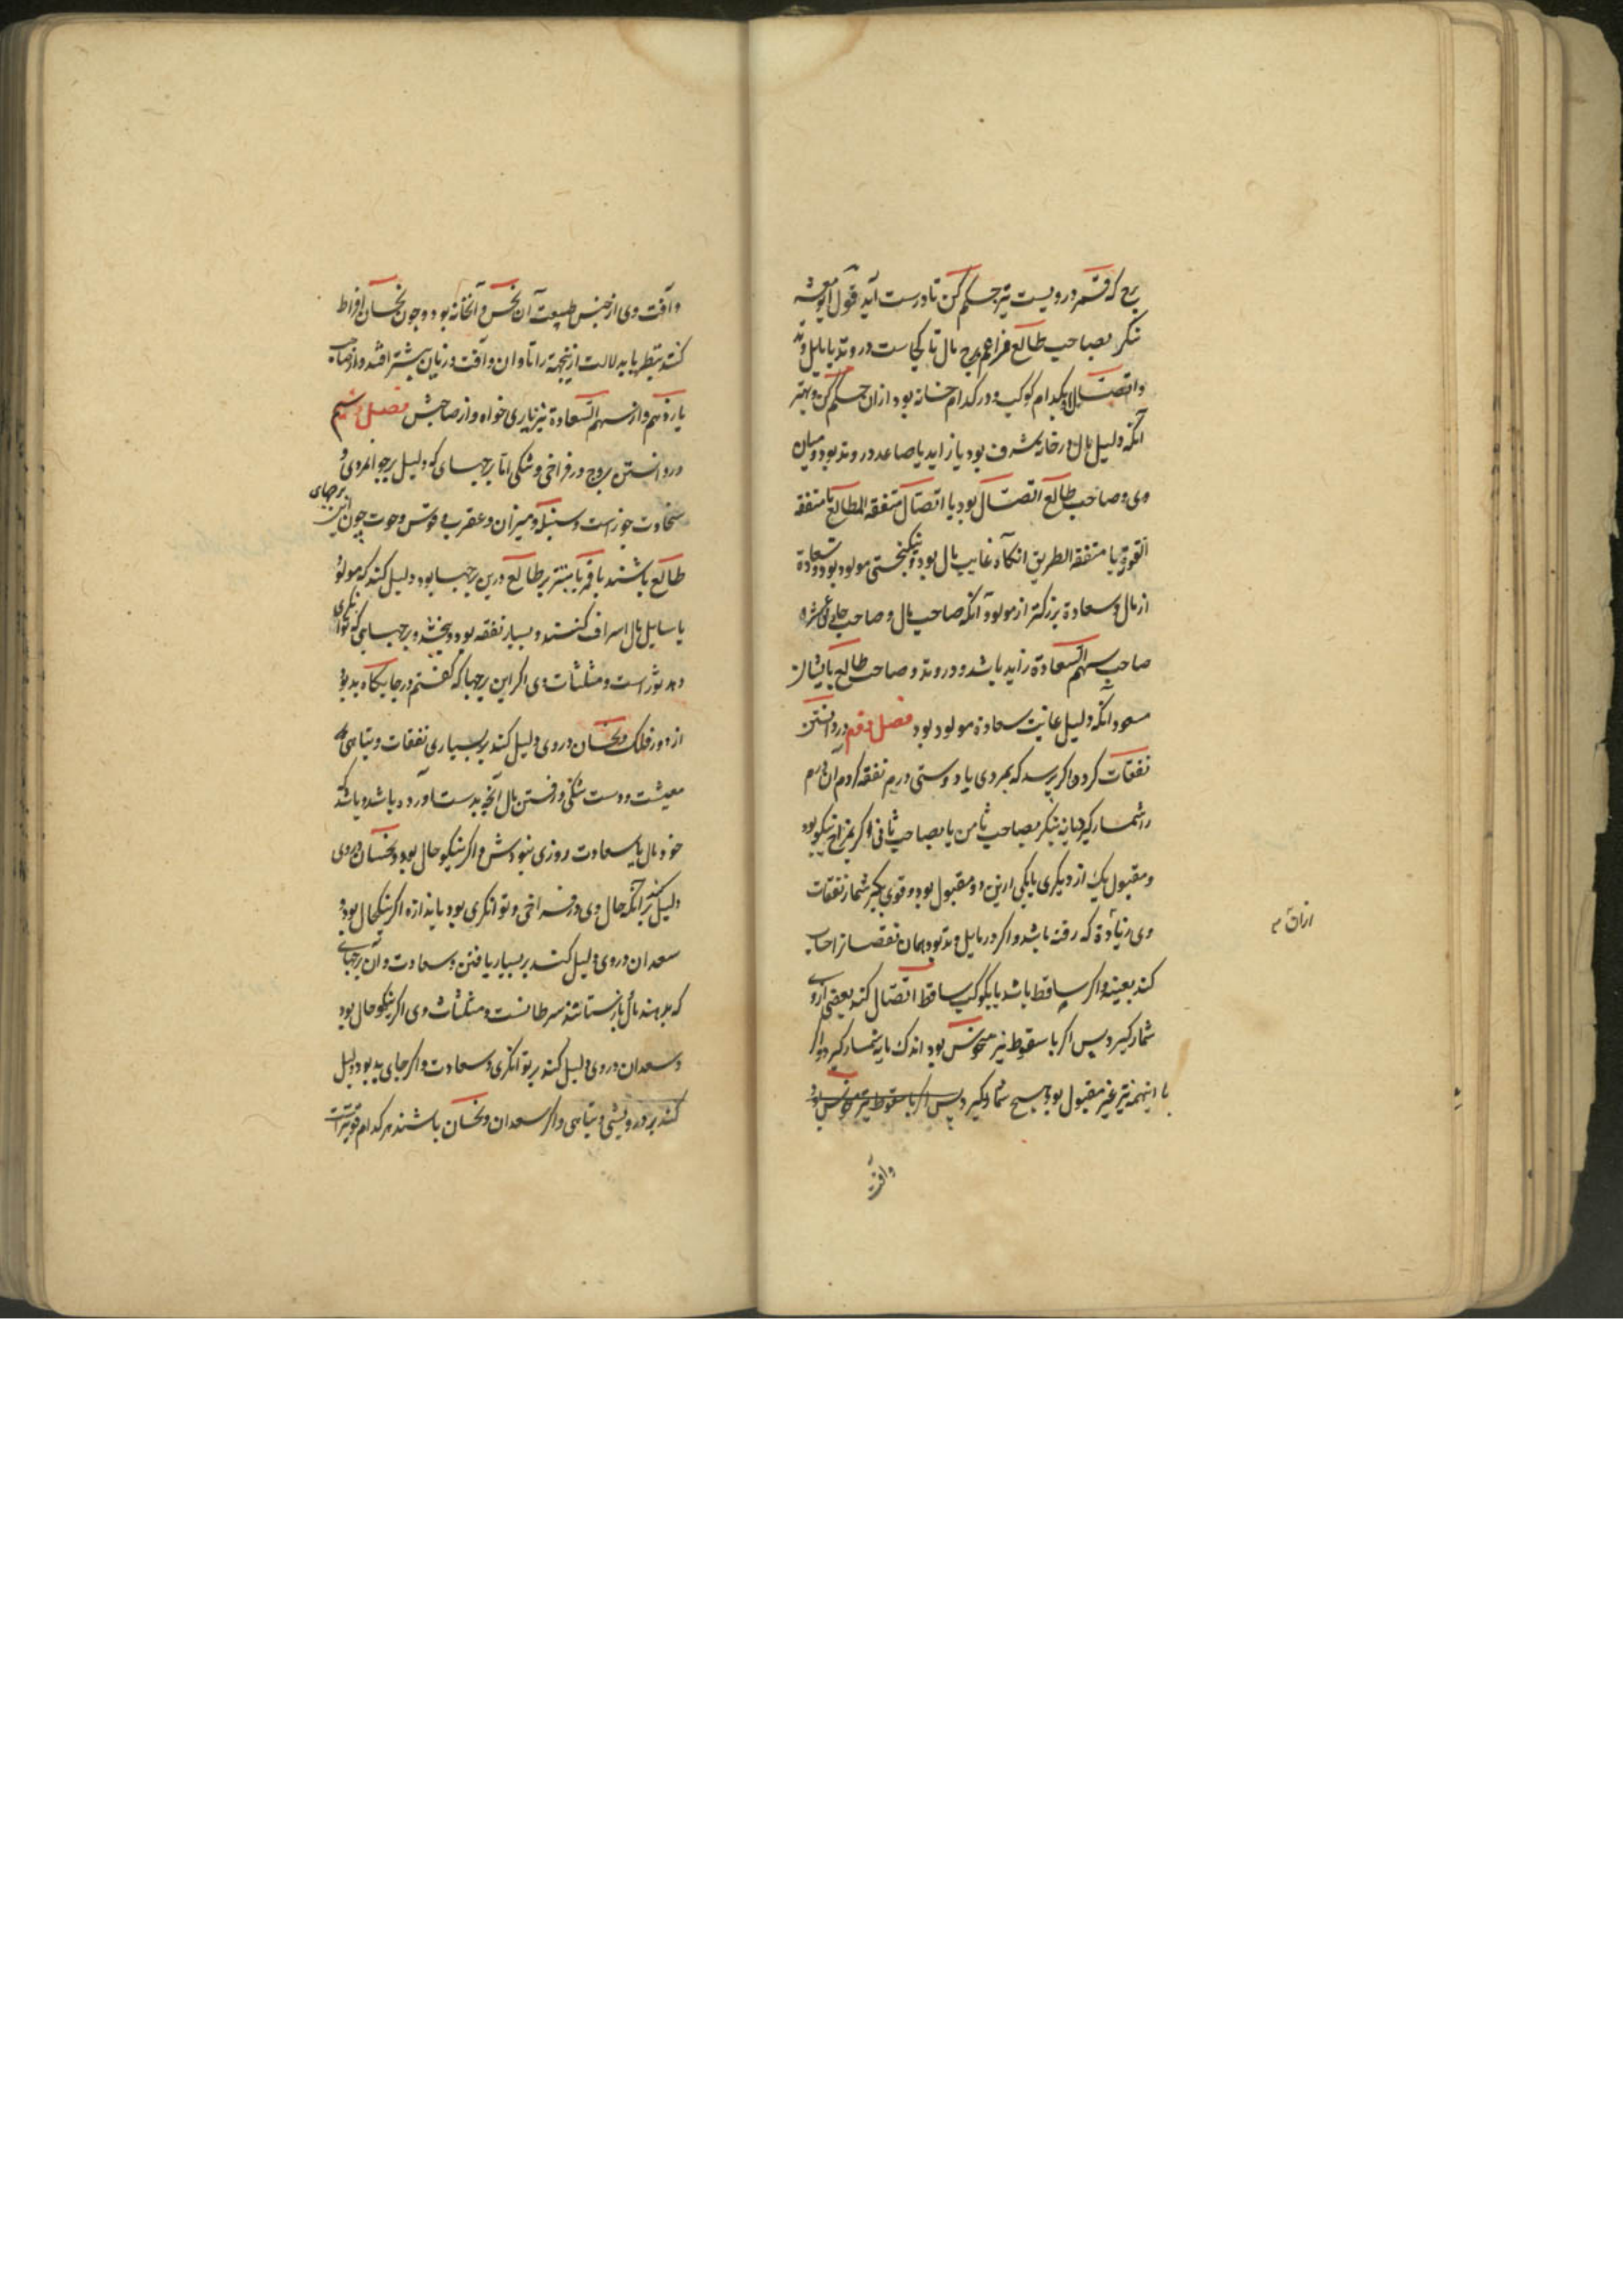 برج که قمر درویست نیز حکم کن تا درست آید قول ابومعشر
بنکر بصاحب طالع فراهم برج مال تا کجاست در وتد یا مایل وتد
واتصال بکدام کوکب و در کدام خانه بود ازان حکم کن و بهتر
آنکه دلیل مال در خانه شرف بود یا زاید یا صاعد در وتد بود و میان
وی و صاحب طالع اتصال بود یا اتصال متفقه المطالع یا متفقه
القوة یا متفقه الطریق انکاه غایب مال بود و نیکبختی مولود بود و سعادة
از مال و سعادة بزرکتر از مولود آنکه صاحب مال و صاحب
صاحب سهم السعادة زاید باشد و در وتد و صاحب طالع بایشان
مسعود انکه دلیل غایت سعادة مولود بود فصل دوم در دانستن
نفقات کرده اکر پرسد که بمردی یا دوستی درم نفقه کردم آن درم
را شمار کیرد یا نه بنکر بصاحب ثامن یا بصاحب ثانی اکر بمزاج نیکو بود
و مقبول یک از دیکری یا یکی ازین دو مقبول بود و قوی بکیر شمار نفقات
وی زیادة که رفته باشد و اکر در مایل وتد بود همان نفقات را حساب
کند بعینه و اکر ساقط باشد یا بکوکب ساقط اتصال کند بعضی ازوی
ازان
شمار کیرد پس اکر با سقوط نیز منحوس بود اندک مایه شمار کیرد و اکر
با اینهمه نیز غیر مقبول بود هیچ شمار نکیرد پس اکر با سقوط نیز منحوس بود
وآفت
وآفت وی از جنس طبیعت آن نحس و آنخانه بود و چون نحسان افراط
کنند بنظر یا بدلالت ازینجهة را تاوان و آفت و زیان بیشتر افتد و از صاحب
یازدهم و از سهم السعادة نیز یاری خواه و از صاحبش فصل سیم
در دانستن بروج در فراخی و تنکی اما برجهای که دلیل بر جوانمردی و
سخاوت جوزاست و سنبله و میزان و عقرب و قوس و حوت چون این برجهای
طالع باشند یا قمر یا مبتز بر طالع درین برجها بود دلیل کند که مولود
یا سایل مال اسراف کنند و بسیار نفقه بود و بخشد و برجهای که توانکری
دهد ثور است و مثلثات وی اکر این برجها که کفتم در جایکاه بد بود
از دور فلک و نحسان در وی دلیل کند بر بسیاری نفقات و تباهی
معیشت و دست تنکی و رفتن مال آنچه بدست آورده باشد و باشد که
خود مال یا سعادت روزی نبودش و اکر نیکو حال بود و نحسان در وی
دلیل کند بر آنکه حال وی در فراخی و توانکری بود باندازه اکر نیکحال بود و
سعدان در وی دلیل کند بر بسیار یافتن و سعادت و آن برجهای
که بدهند مال باز ستانند سرطانست و مثلثات وی اکر نیکو حال بود
و سعدان در وی دلیل کند بر توانکری و سعادت و اکر جای بد بود دلیل
کند بر درویشی و تباهی و اکر سعدان و نحسان باشند هر کدام قویتر است